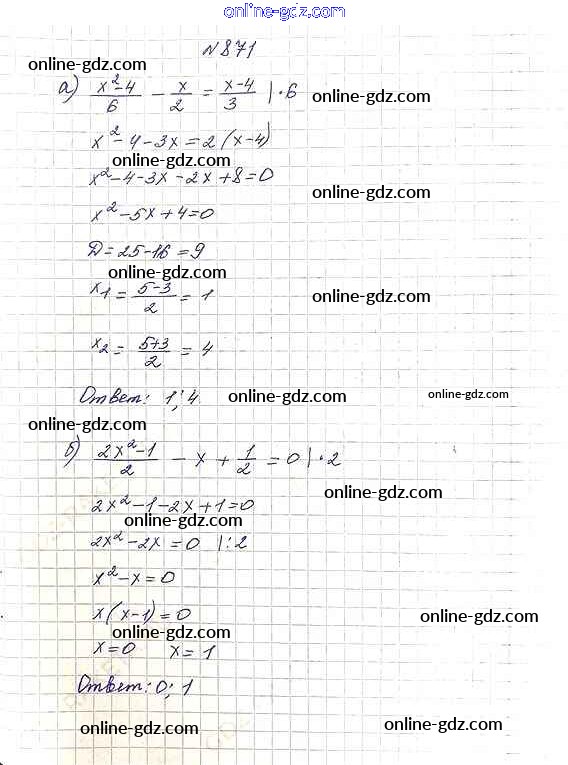 online-gdz.com
№ 871
online-gdz.com
а) \frac{x²-4}{6} - \frac{x}{2} = \frac{x-4}{3} |·6
online-gdz.com
x² - 4 - 3x = 2(x-4)
online-gdz.com
x² - 4 - 3x - 2x + 8 = 0
online-gdz.com
x² - 5x + 4 = 0
D = 25-16 = 9
online-gdz.com
x₁ = \frac{5-3}{2} = 1
online-gdz.com
x₂ = \frac{5+3}{2} = 4
Ответ: 1; 4
online-gdz.com
online-gdz.com
online-gdz.com
б) \frac{2x²-1}{2} - x + \frac{1}{2} = 0 |·2
online-gdz.com
2x² - 1 - 2x + 1 = 0
online-gdz.com
2x² - 2x = 0 |:2
x² - x = 0
x(x-1) = 0
online-gdz.com
online-gdz.com
x = 0 x = 1
Ответ: 0; 1
online-gdz.com
online-gdz.com